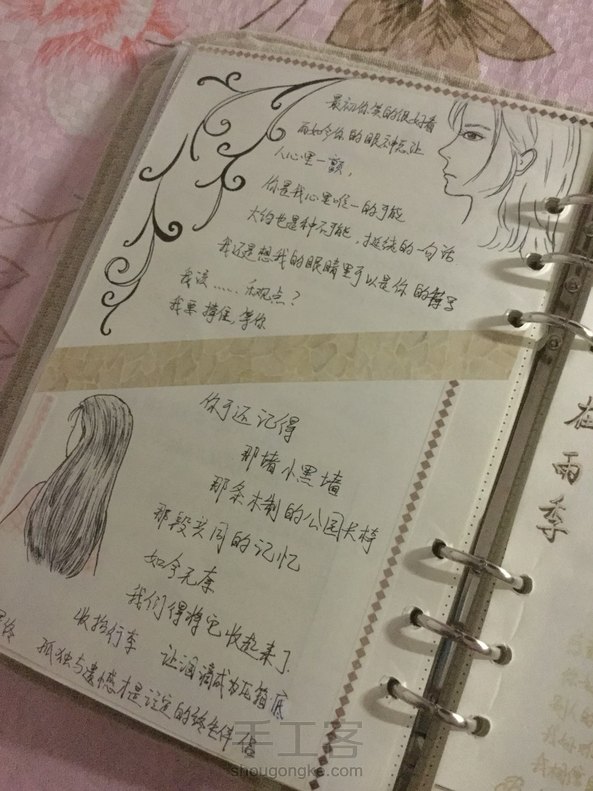 最初你笑的很好看
而如今你的眼神总让
人心里一颤，
你是我心里唯一的可能
大约也是种不可能，挺绕的一句话
我还是想我的眼睛里可以是你的影子
我该……乐观点？
我要撑住，等你
你可还记得
那堵小黑墙
那条木制的公园长椅
那段共同的记忆
如今无奈
我们得将它收起来了
收拾行李
让泪滴成为压箱底
孤独与遗憾才是注定的终
在
雨
季
手工客
shougongke.com